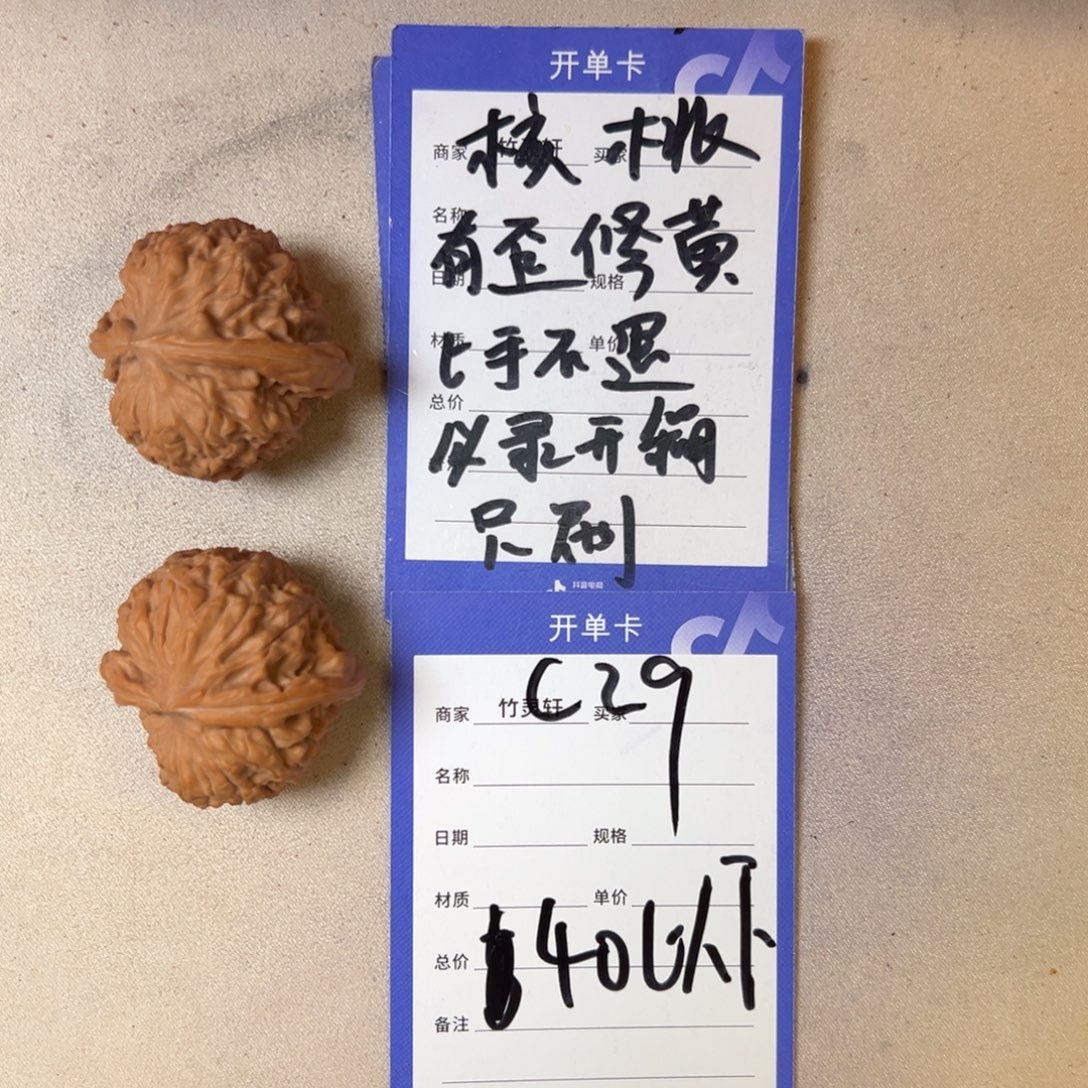 开单卡
核桃
商家 竹灵轩 买家
名称
有歪修黄
日期 规格
材质 单价
上手不退
总价
必录开箱
只刷
抖音电商
开单卡
C29
商家 竹灵轩 买家
名称
日期 规格
材质 单价
总价 40以下
备注